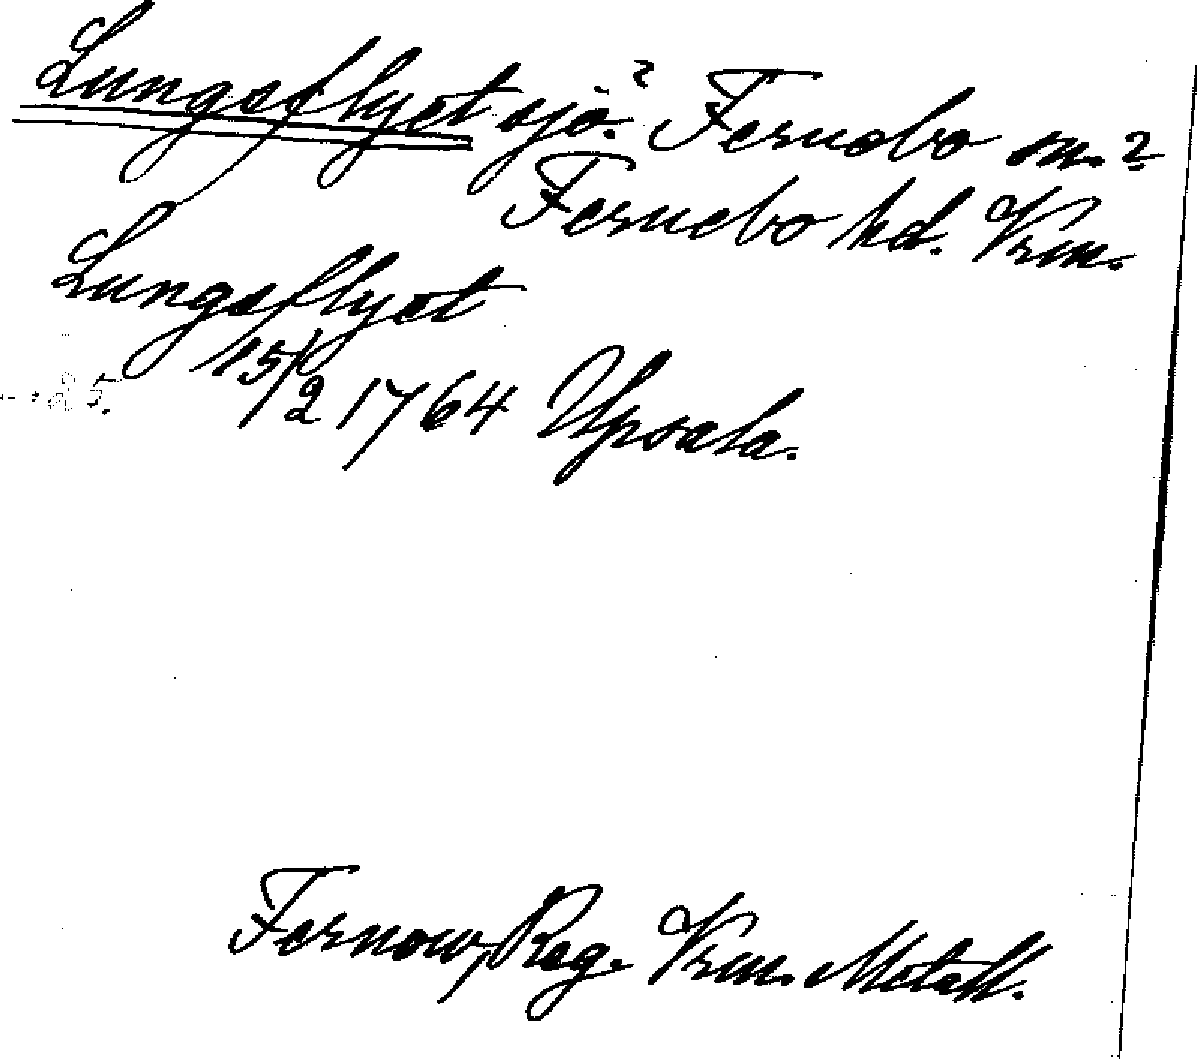 Lungsflyet sjö.? Fernebo sn.?
Fernebo hd. Vrm.
Lungsflyet
15/2 1764 Upsala.
Fernow, Reg. Vrm. Metall.